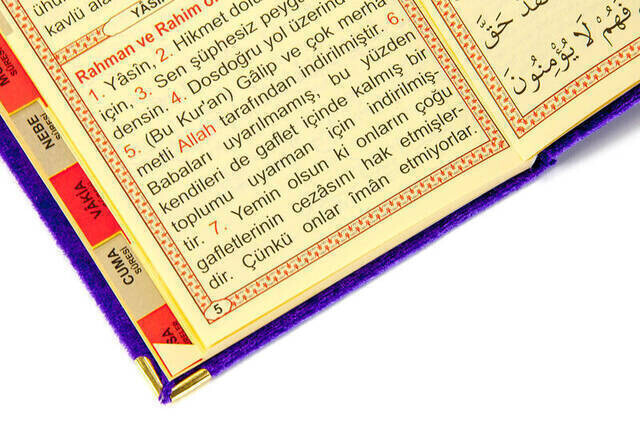 kavlü
YÂSİN
Rahman ve Rahim
1. Yâsîn, 2. Hikmet
için, 3. Sen şüphesiz
densin. 4. Dosdoğru yol üzerinde
5. (Bu Kur'an) Gâlip ve çok merha-
metli Allah tarafından indirilmiştir. 6.
Babaları uyarılmamış, bu yüzden
kendileri de gaflet içinde kalmış bir
toplumu uyarman için indirilmiş-
tir. 7. Yemin olsun ki onların çoğu
gafletlerinin cezâsını hak etmişler-
dir. Çünkü onlar îmân etmiyorlar.
5
حَقَّ
فَهُمْ لَا يُؤْمِنُونَ
SÛRESİ
NEBE
SÛRESİ
VÂKİA
CUMA
SÛRESİ